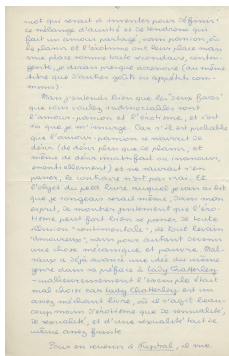 mot qui serait à inventer pour définir
ce mélange d'amitié et de tendresse qui
fait un amour partagé, sans passion, où
le plaisir et l'érotisme ont leur place mais
une place somme toute secondaire, contin-
gente, je dirais presque accessoire (au même
titre que d'autres goûts ou appétits com-
muns)
Mais j'entends bien que les "deux faces"
que vous voulez indissociables sont
l'amour-passion et l'érotisme, et c'est
où que je m'insurge. Car s'il est probable
que l'amour-passion se nourrit de
désir (de désir plus que de plaisir, et
même de désir insatisfait ou
essentiellement) et ne saurait s'en
passer, le contraire n'est pas vrai. Et
l'objet du petit livre auquel je vous ai dit
que je songeais serait même, dans mon
esprit, de montrer justement que l'éro-
tisme peut fort bien se passer de toute
"sentimentale", de tout levain
amoureux, sans pour autant devenir
une chose mécanique et pauvre. Mal-
raux a déjà avancé une idée du même
genre dans sa préface à Lady Chatterley
- malheureusement l'exemple était
mal choisi car Lady Chatterley est un
assez méchant livre, où il s'agit beau-
coup moins d'érotisme que de sensualité,
de sexualité, et d'une sexualité tout de
même assez fruste.
Pour en revenir à , je me